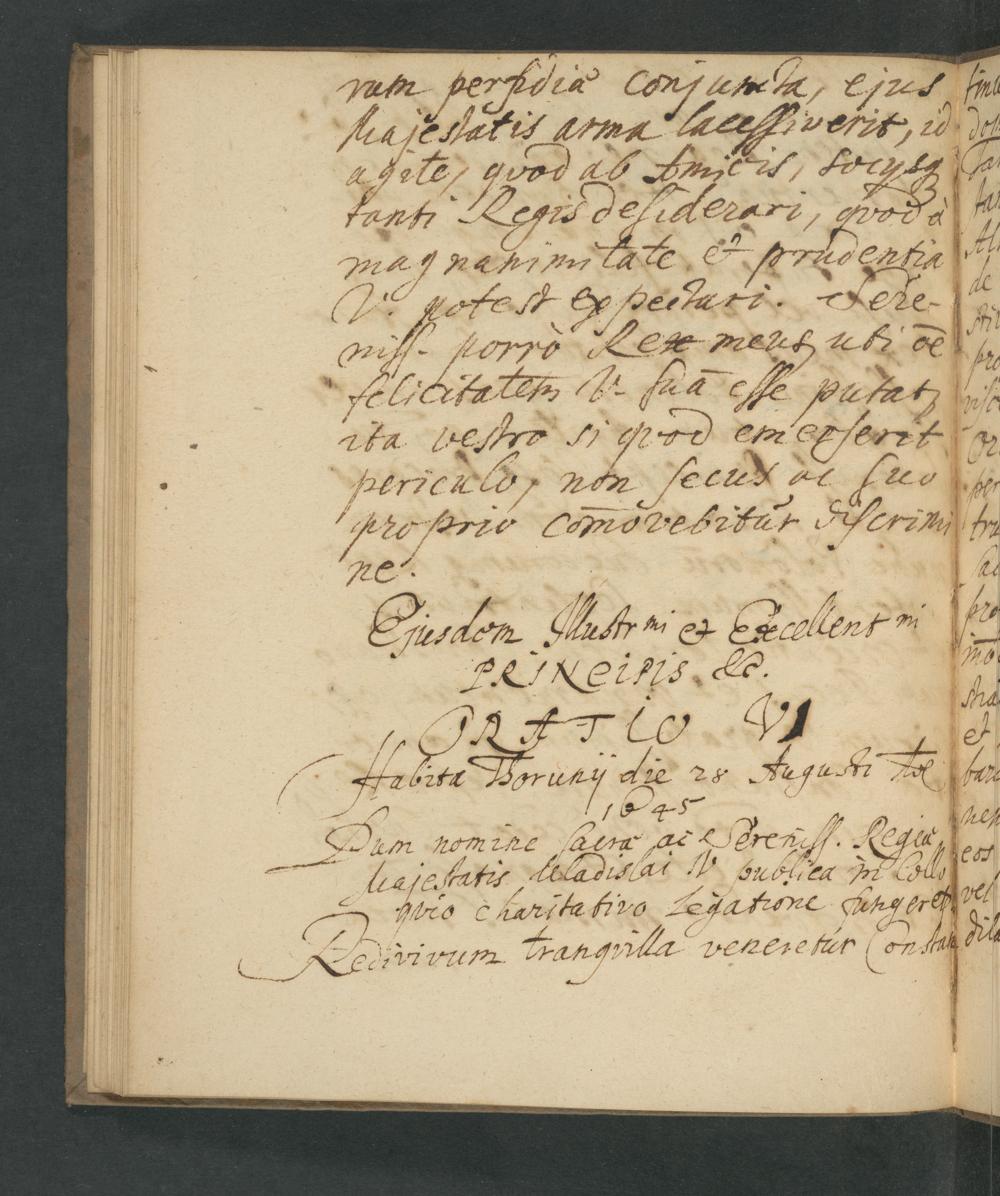 rum perfidiâ conjuncta, ejus
Majestatis arma lacessiverit, id
agite, quod ab Amicis, socysq
tanti Regis desiderari, quod à
magnanimitate & prudentia
V. potest expectari. Sere-
niss. porrò Rex meus, uti oē
felicitatem V. suā esse putat,
ita vestro si quod emerserit
periculo, non secus ac suo
proprio com̄ovebitur discrimi
ne.
Ejusdem Illustr mi et Excellent mi
PRINCIPIS &c.
ORATIO VI
Habita Thorunij die 28 Augusti
1645
Dum nomine Sacræ ac Sereniss. Regiæ
Majestatis Uladislai IV publica in Collo
quio charitativo Legatione fungeret.
Redivivum tranquilla veneretur Constan